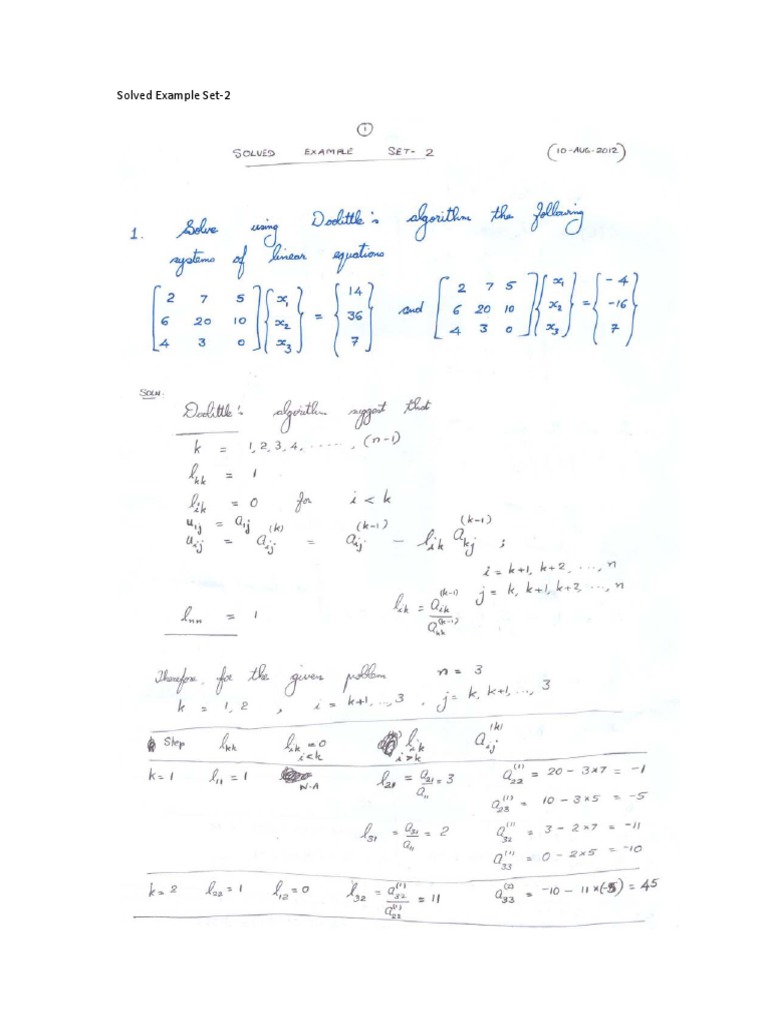 Solved Example Set-2
1
SOLVED EXAMPLE SET-2 (10-AUG-2012)
1. Solve using Doolittle's algorithm the following
systems of linear equations
[2 7 5; 6 20 10; 4 3 0] {x₁; x₂; x₃} = {14; 36; 7} and [2 7 5; 6 20 10; 4 3 0] {x₁; x₂; x₃} = {-4; -16; 7}
SOLN.
Doolittle's algorithm suggest that
k = 1, 2, 3, 4, ......, (n-1)
l_kk = 1
l_ik = 0 for i < k
u_1j = a_1j
u_ij = a_ij^(k) = a_ij^(k-1) - l_ik a_kj^(k-1) ;
i = k+1, k+2, ..., n
j = k, k+1, k+2, ..., n
l_ik = a_ik^(k-1) / a_kk^(k-1)
l_nn = 1
Therefore, for the given problem n = 3
k = 1, 2 , i = k+1, ..., 3 , j = k, k+1, ..., 3
Step l_kk l_ik = 0 i<k l_ik i>k a_ij^(k)
k=1 l_11 = 1 N.A l_21 = a_21/a_11 = 3 a_22^(1) = 20 - 3×7 = -1
a_23^(1) = 10 - 3×5 = -5
l_31 = a_31/a_11 = 2 a_32^(1) = 3 - 2×7 = -11
a_33^(1) = 0 - 2×5 = -10
k=2 l_22 = 1 l_12 = 0 l_32 = a_32^(1)/a_22^(1) = 11 a_33^(2) = -10 - 11×(-5) = 45